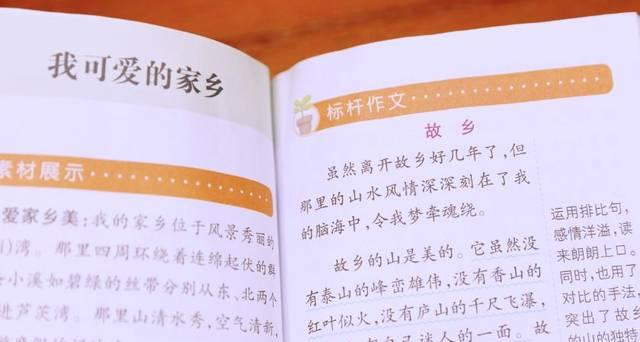 我可爱的家乡
素材展示
爱家乡美：我的家乡位于风景秀丽的
)湾。那里四周环绕着连绵起伏的群
小溪如碧绿的丝带分别从东、北两个
进芦茨湾。那里山清水秀，空气清新，
标杆作文
故 乡
虽然离开故乡好几年了，但
那里的山水风情深深刻在了我
的脑海中，令我梦牵魂绕。
故乡的山是美的。它虽然没
有泰山的峰峦雄伟，没有香山的
红叶似火，没有庐山的千尺飞瀑，
有自己迷人的一面。故
运用排比句，
感情洋溢，读
来朗朗上口。
同时，也用了
对比的手法，
突出了故乡
的山的独特